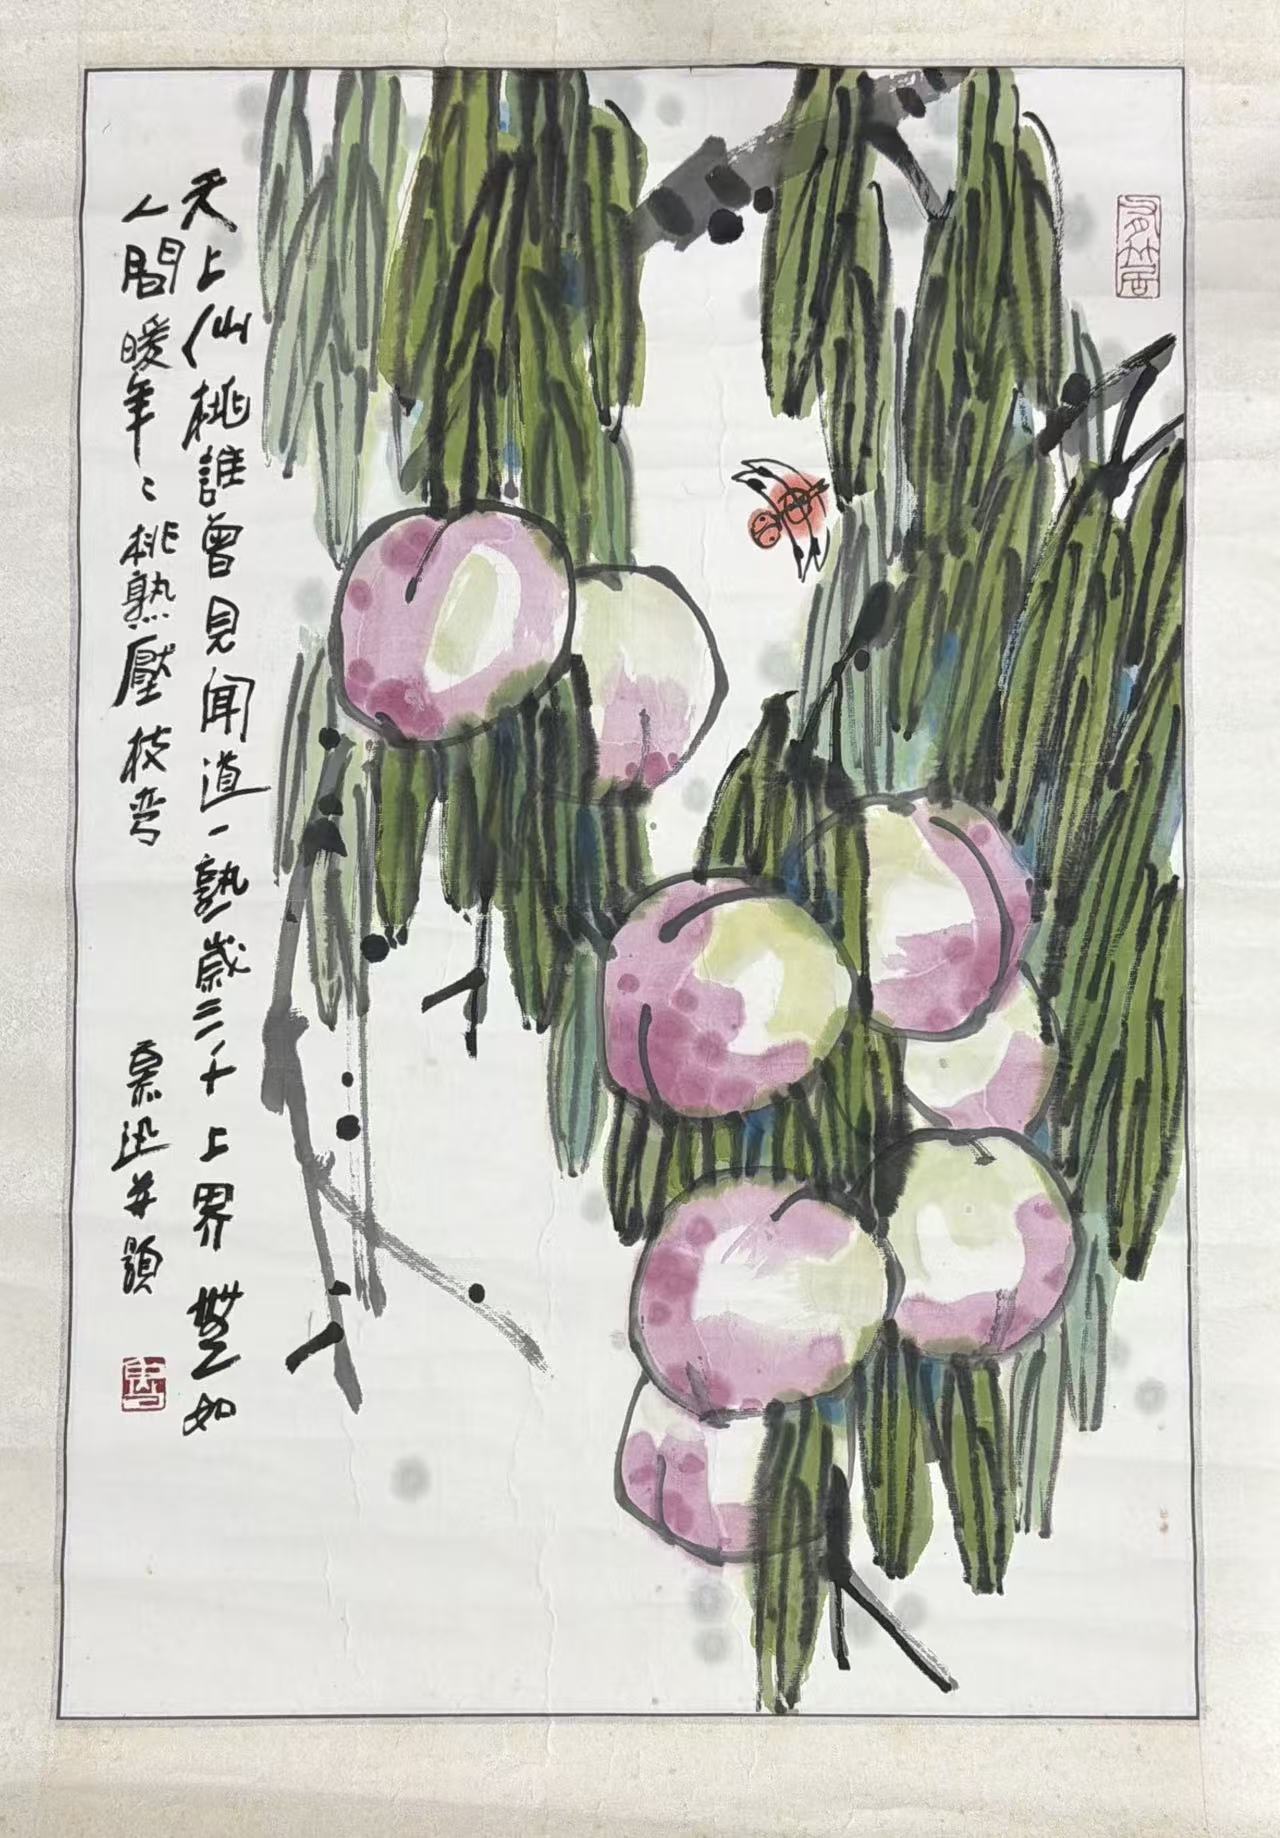 天上仙桃誰曾見聞道一熟歲三千上界無如
人間暖年〻桃熟壓枝彎
慕迅并題
魯